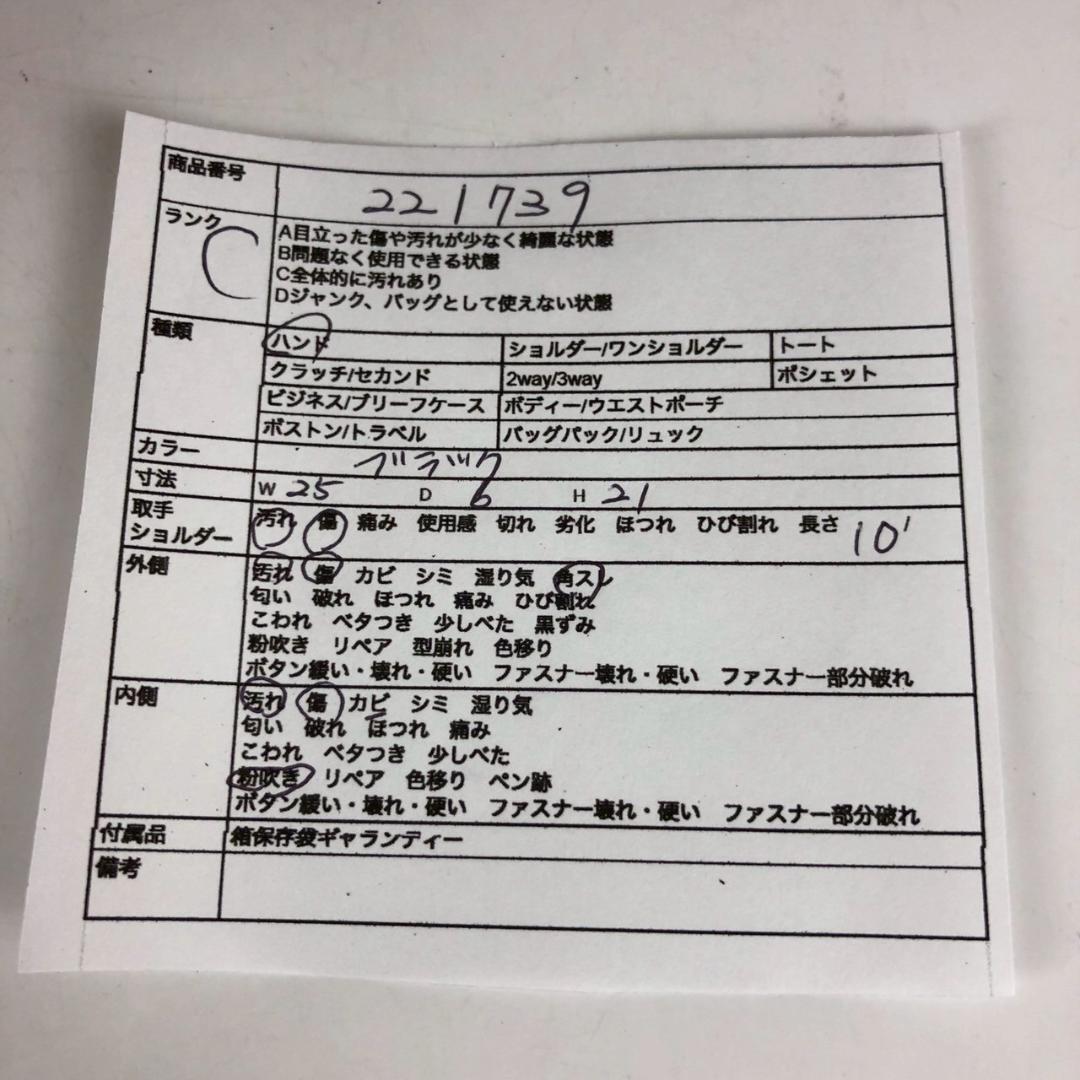 商品番号 221739
ランク C
A目立った傷や汚れが少なく綺麗な状態
B問題なく使用できる状態
C全体的に汚れあり
Dジャンク、バッグとして使えない状態
種類 ハンド ショルダー/ワンショルダー トート
クラッチ/セカンド 2way/3way ポシェット
ビジネス/ブリーフケース ボディー/ウエストポーチ
ボストン/トラベル バッグパック/リュック
カラー ブラック
寸法 W 25 D 6 H 21
取手 汚れ 傷 痛み 使用感 切れ 劣化 ほつれ ひび割れ 長さ 10
ショルダー
外側 汚れ 傷 カビ シミ 湿り気 角スレ
匂い 破れ ほつれ 痛み ひび割れ
こわれ ベタつき 少しべた 黒ずみ
粉吹き リペア 型崩れ 色移り
ボタン緩い・壊れ・硬い ファスナー壊れ・硬い ファスナー部分破れ
内側 汚れ 傷 カビ シミ 湿り気
匂い 破れ ほつれ 痛み
こわれ ベタつき 少しべた
粉吹き リペア 色移り ペン跡
ボタン緩い・壊れ・硬い ファスナー壊れ・硬い ファスナー部分破れ
付属品 箱保存袋ギャランティー
備考